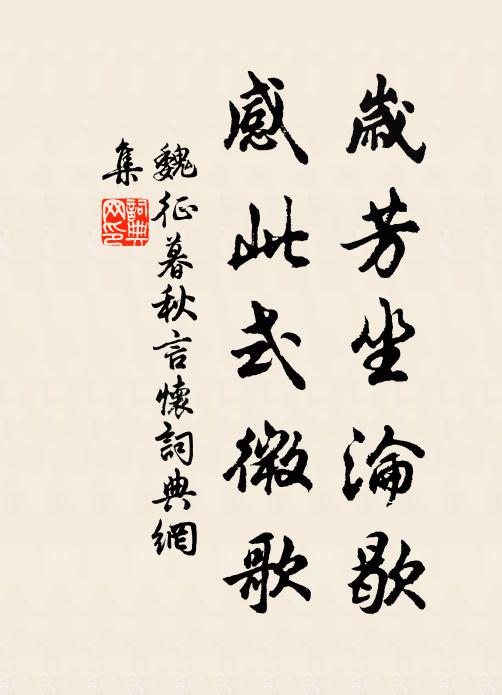 歲芳坐淪歇
感此式微歌
魏征暮秋言懷詞典網
集
詞典
网印